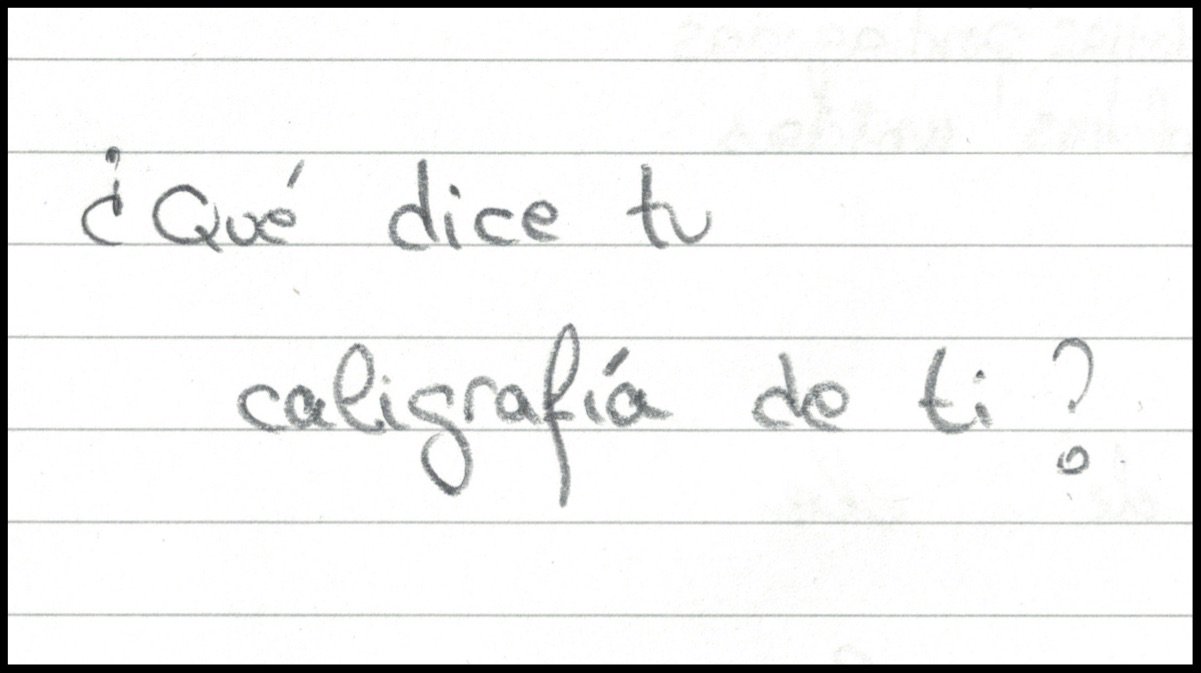 ¿Qué dice tu
caligrafía de ti?